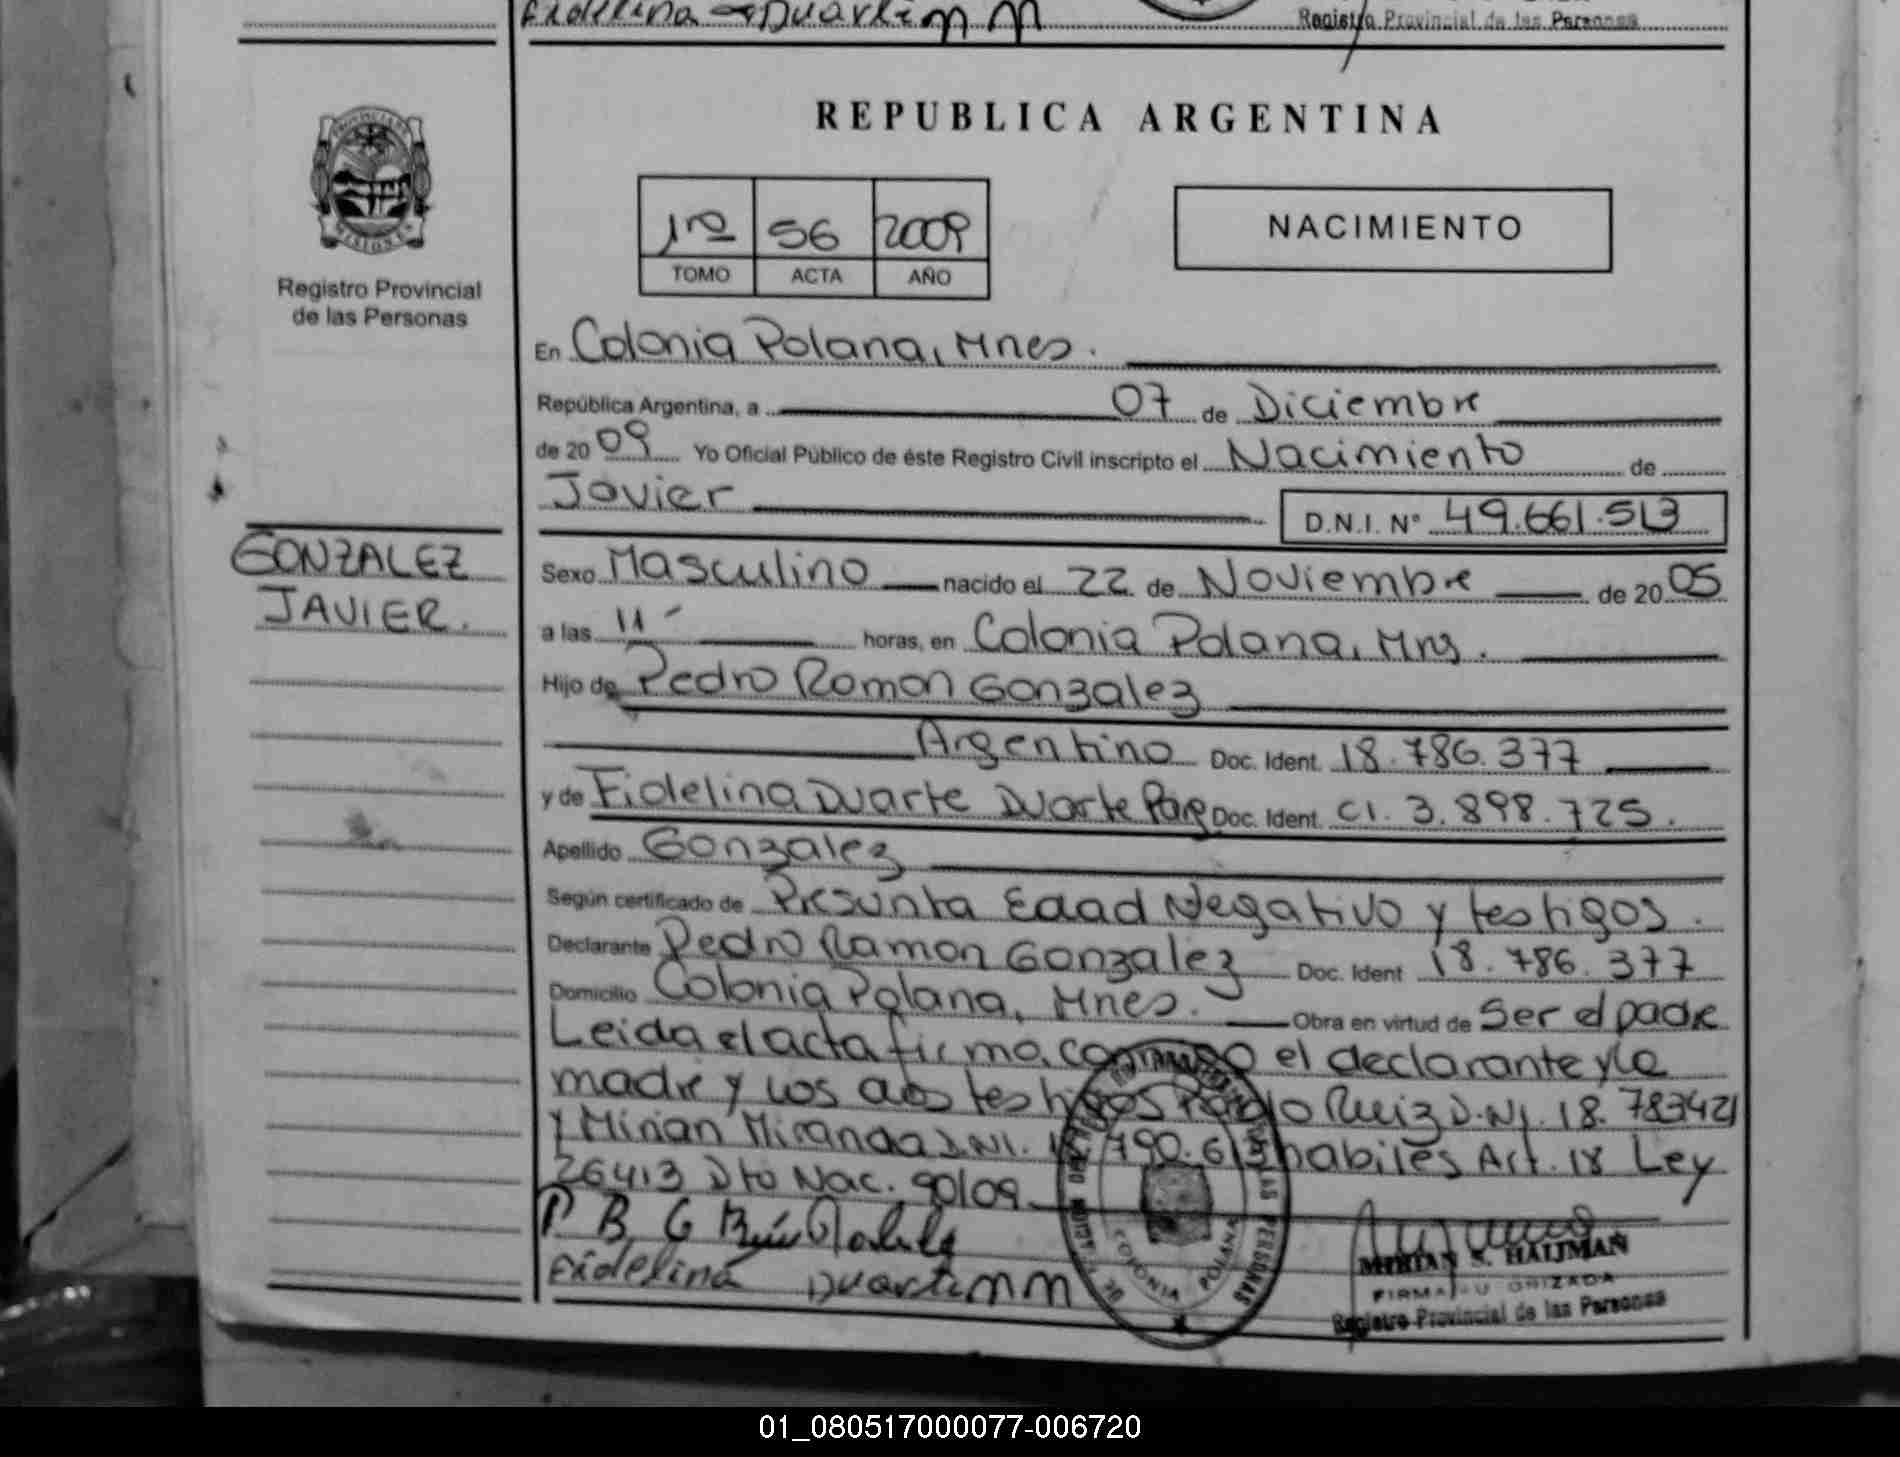 Fidelina Duarte m m
Registro Provincial de las Personas
PROVINCIA DE
MISIONES
Registro Provincial
de las Personas
REPUBLICA ARGENTINA
1ro 56 2009
TOMO ACTA AÑO
NACIMIENTO
En Colonia Polana, Mnes.
República Argentina, a 07 de Diciembre
de 2009 Yo Oficial Público de éste Registro Civil inscripto el Nacimiento de
Javier D.N.I. Nº 49.661.513
GONZALEZ
JAVIER.
Sexo Masculino nacido el 22 de Noviembre de 2005
a las 11 horas, en Colonia Polana, Mns.
Hijo de Pedro Ramon Gonzalez
Argentino Doc. Ident. 18.786.377
y de Fidelina Duarte Duarte Par Doc. Ident. CI. 3.898.725.
Apellido Gonzalez
Según certificado de Presunta Edad Negativo y testigos.
Declarante Pedro Ramon Gonzalez Doc. Ident 18.786.377
Domicilio Colonia Polana, Mnes. Obra en virtud de Ser el padre
Leida el acta firma conmigo el declarante y la
madre y los dos testigos Ruiz D.NI. 18.783421
y Mirian Miranda D.NI. 790.6 habiles Art. 18 Ley
26413 Dto Nac. 90/09
P B G
Fidelina Duarte m m
COLONIA POLANA
LAS PERSONAS
MIRIAN S. HAIJMAN
FIRMA AUTORIZADA
Registro Provincial de las Personas
01_080517000077-006720